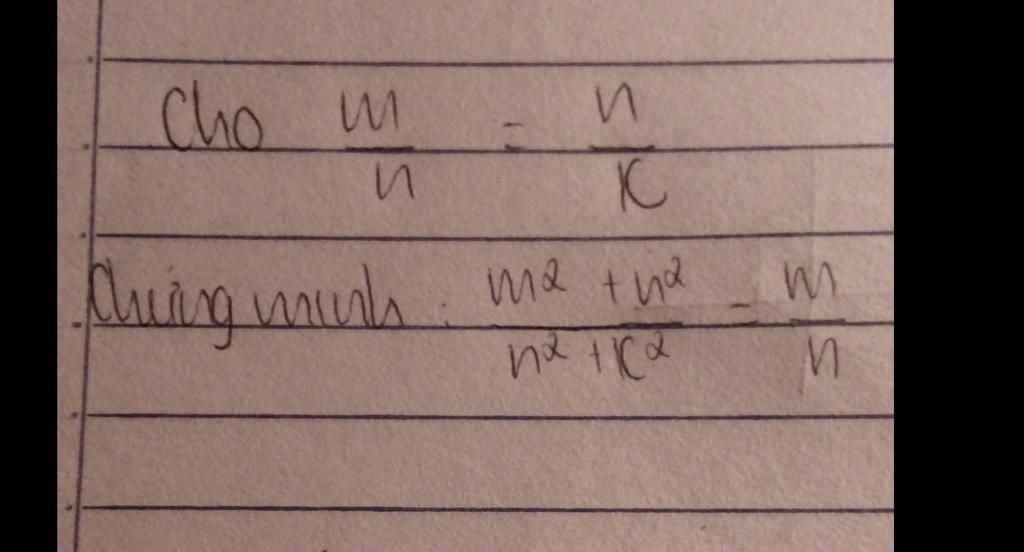 Cho m/n = n/K
Chứng minh : m² + n² / n² + K² = m/n